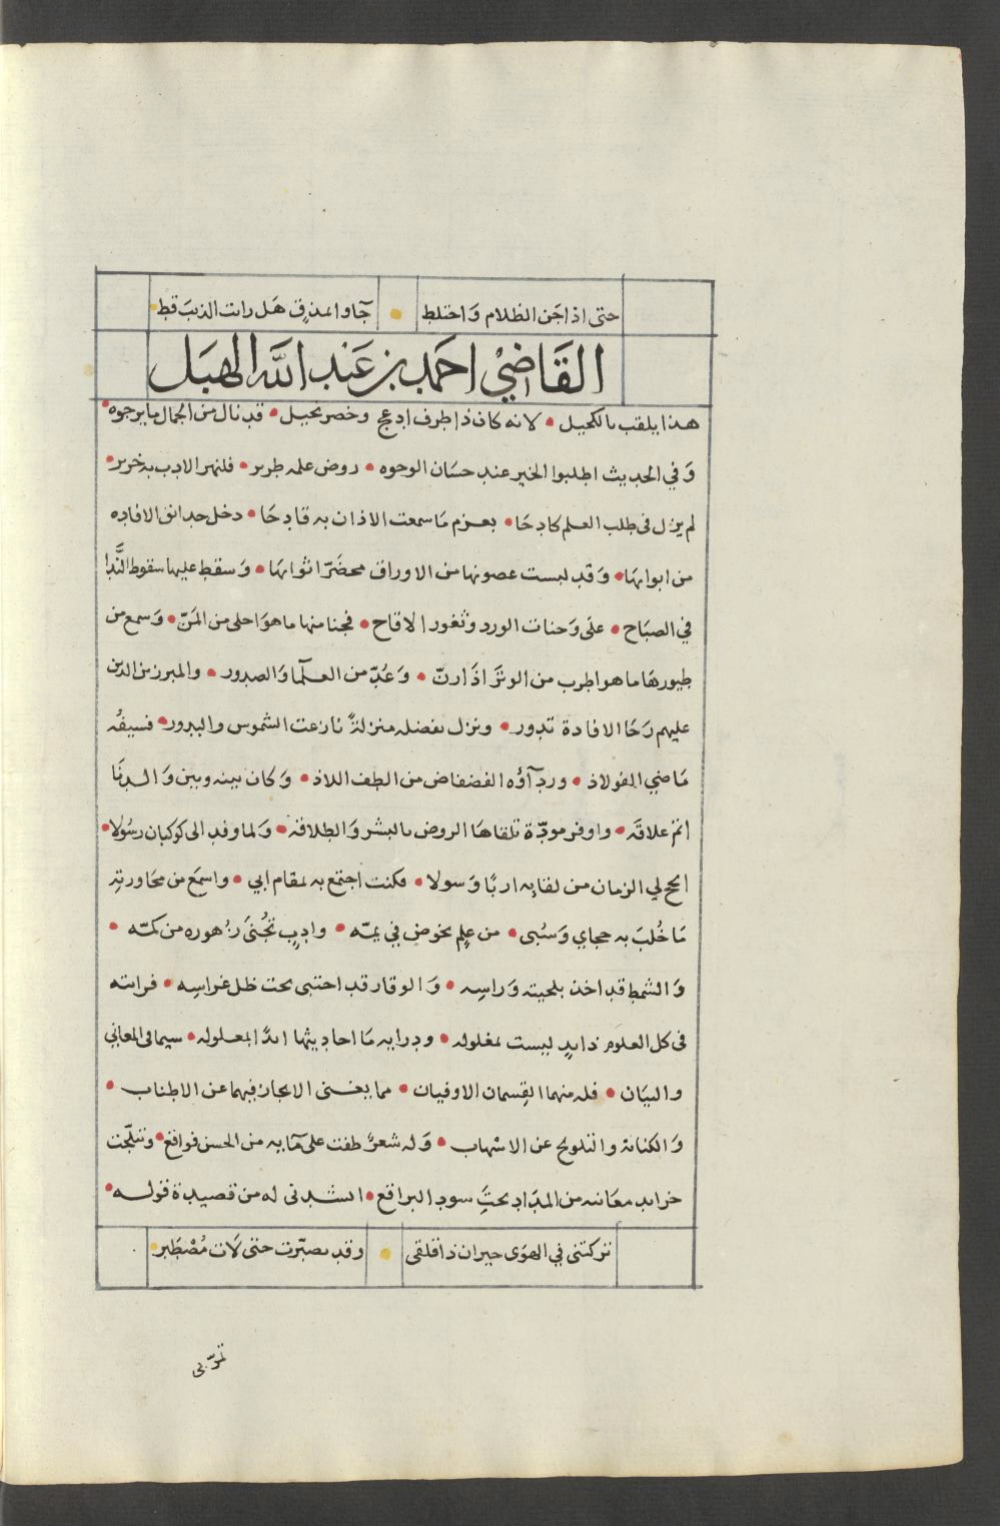 حتى اذا جَن الظلام وَاختلط • جآوا بمذق هَل رات الذيبَ قط •
القَاضِيْ احمَد بن عَبد اللَّه الهبَل
هذا يلقب بالكحيل • لانه كان ذا طرف ادعج وخصر نحيل • قد نال من الجمال ما يرجوه •
وَفي الحديث اطلبوا الخير عند حسَان الوجوه • روض علمه طرير • فلنهر الادب به خرير •
لم يزل في طلب العلم كادحَا • بعزم مَا سمعت الاذان به قادحَا • دخل حدائق الافاده
من ابوابهَا • وَقد لبست غصونها من الاوراق محضَرّ اثوابهَا • وَسقط عليها سقوط النَّدا
في الصبَاح • على وَجنات الورد وثغور الاقاح • فجنا منها ما هوَ احلى من المَنّ • وَسمع من
طيورهَا ما هو اطرب من الوتَر اذَا رنّ • وَعُدّ من العلمآ وَالصدور • والمبرزين الذين
عليهم رَحَا الافادة تدور • ونزل بفضله منزلةً نازعت الشموس والبدور • فسيفُه
مَاضي الفولاذ • وردآؤه الفضفاض من الطف اللاذ • وَكان بينه وبين وَالدنَا
اتم علاقَه • واوفر مودّة تلقاهَا الروض بالبشر وَالطلاقه • وَلما وفد الى كوكبان رسُولا •
انجح لي الزمان من لقايه اربًا وَسولا • فكنت اجتمع به لمقام ابي • واسمَع من محَاورته
مَا خُلبَ به حجاي وَسُبى • من عِلم يخوض في يمّه • وادبٍ تُجنَى زُهوره من كمّه •
وَالشمط قد اخذ بلحيته وَراسِه • وَالوقار قد احتبى تحت ظل غراسِه • فرايته
في كل العلوم ذا يدٍ ليست بمغلوله • ودرايه مَا احاديثها ابدًا بمعلوله • سيما في المعاني
والبيَان • فله منهما القِسمان الاوفيان • مما يغنى الايجاز فيهما عن الاطناب •
وَالكناية والتلويح عن الاسْهاب • وَله شعرٌ طفت على مَآيه من الحسن فواقع • وتبلّجت
خرايد معَانيه من المدَاد تحتَ سود البراقع • انشدنى له من قصيدة قوله •
تركتنى في الهوَى حيران ذا قلقى • وقد تصبّرت حتى لَات مُصْطَبر •